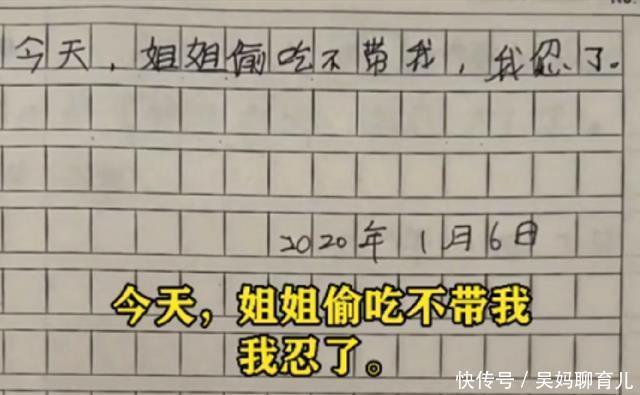 No.
今天，姐姐偷吃不带我，我忍了。
2020年1月6日
今天，姐姐偷吃不带我
我忍了。
快传号／吴妈聊育儿